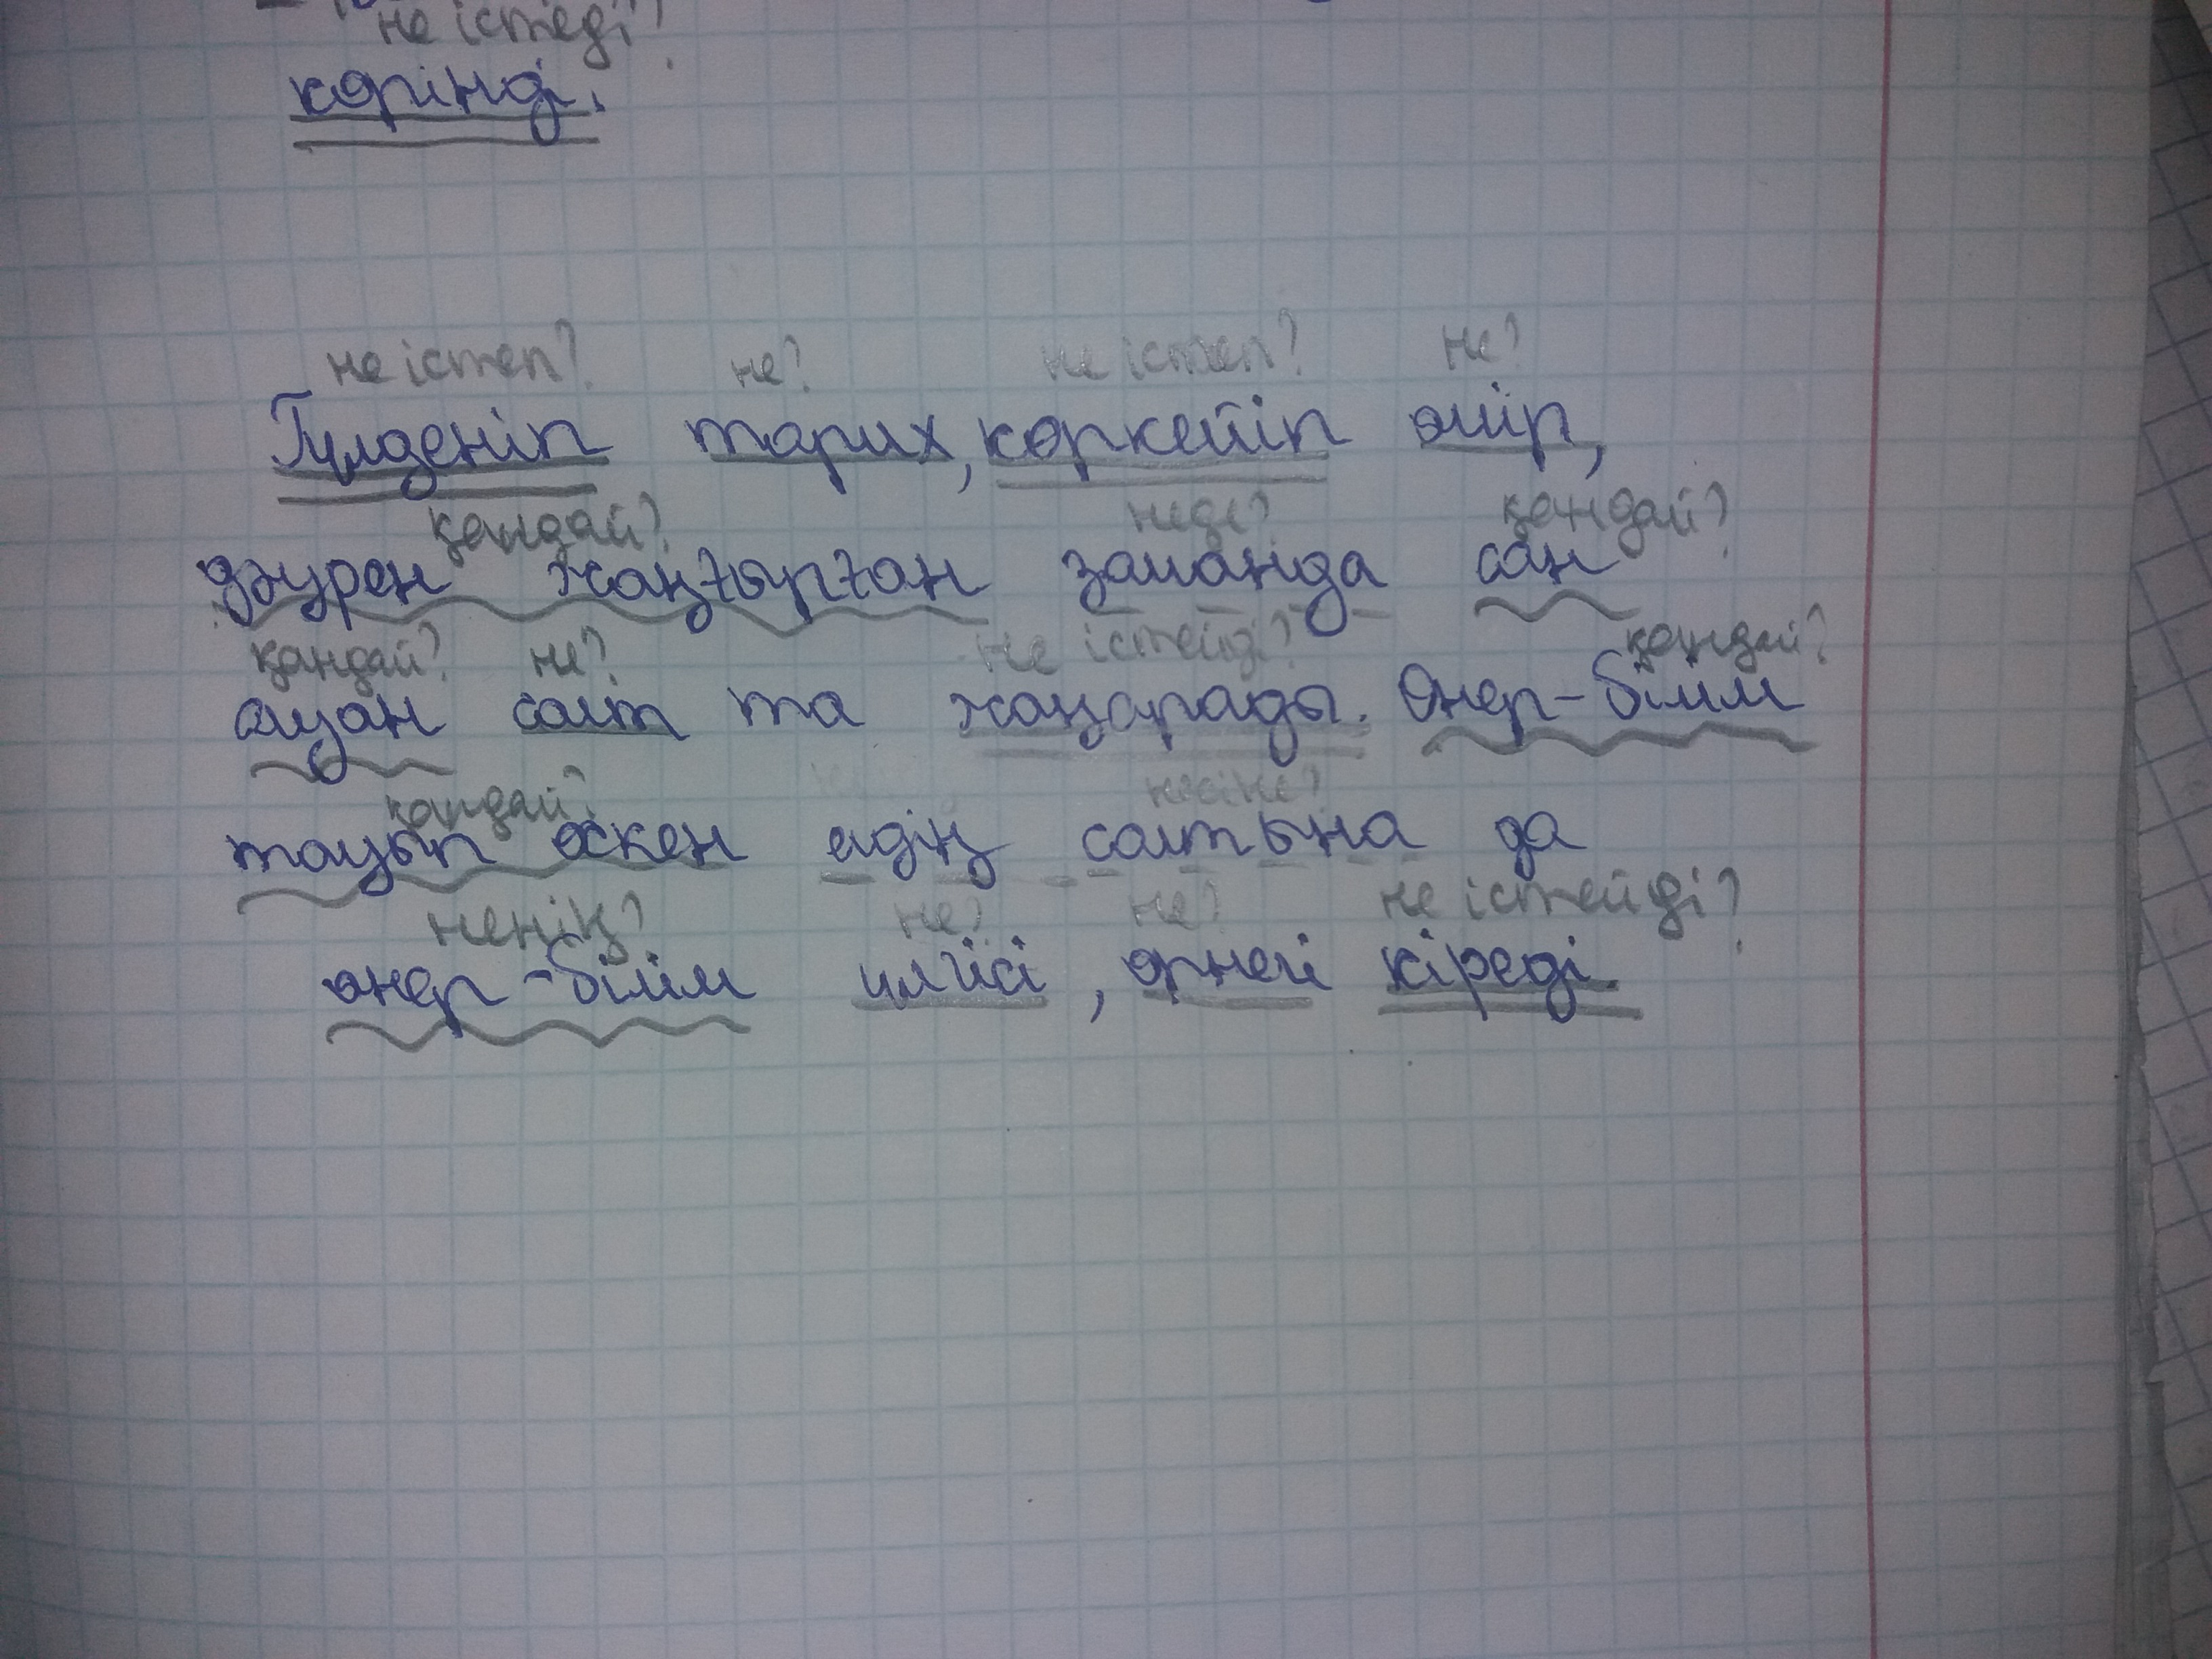 не істеді?
көрінді.
не істеп? не? не істеп? не?
Гүлденіп тарих, көркейіп өмір,
қандай? неде? қандай?
дәурен жаңғырған заманда сан
қандай? не? не істейді? қандай?
алуан салт та жаңарады. Өнер-білім
қандай? несіне?
тауып өскен елдің салтына да
ненің? не? не? не істейді?
өнер-білім үлгісі, өрнегі кіреді.